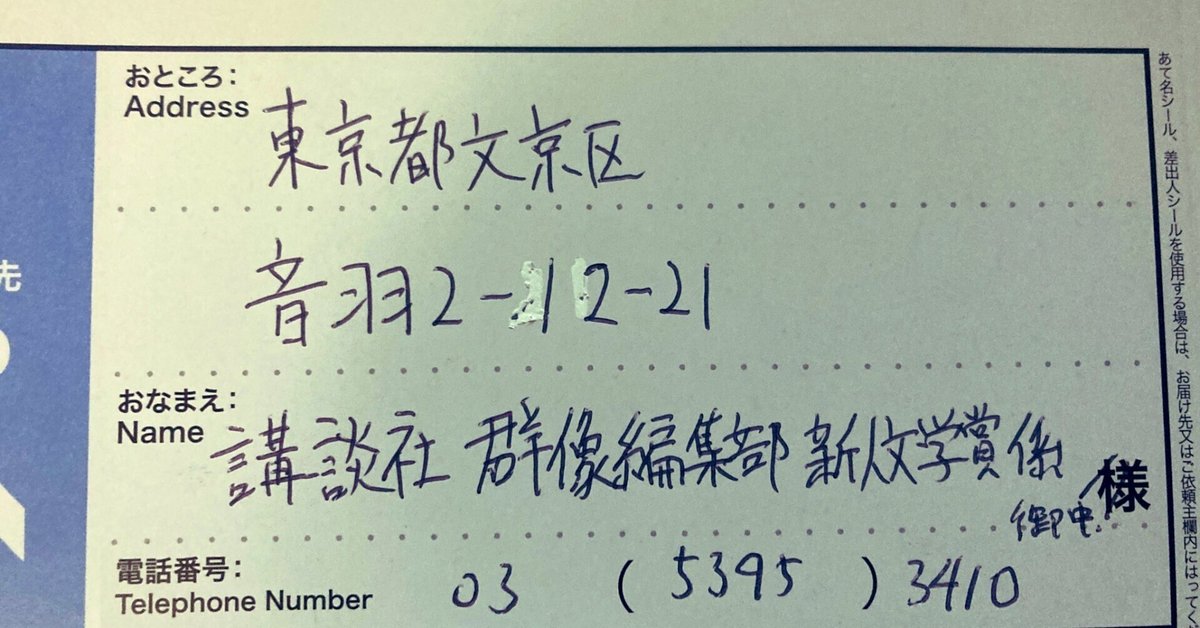 おところ:
Address
東京都文京区
音羽2-12-21
おなまえ:
Name
講談社 群像編集部 新人文学賞係
様
御中
電話番号:
Telephone Number
03 (5395)3410
先
あて名シール、差出人シールを使用する場合は、お届け先又はご依頼主欄内にはってく